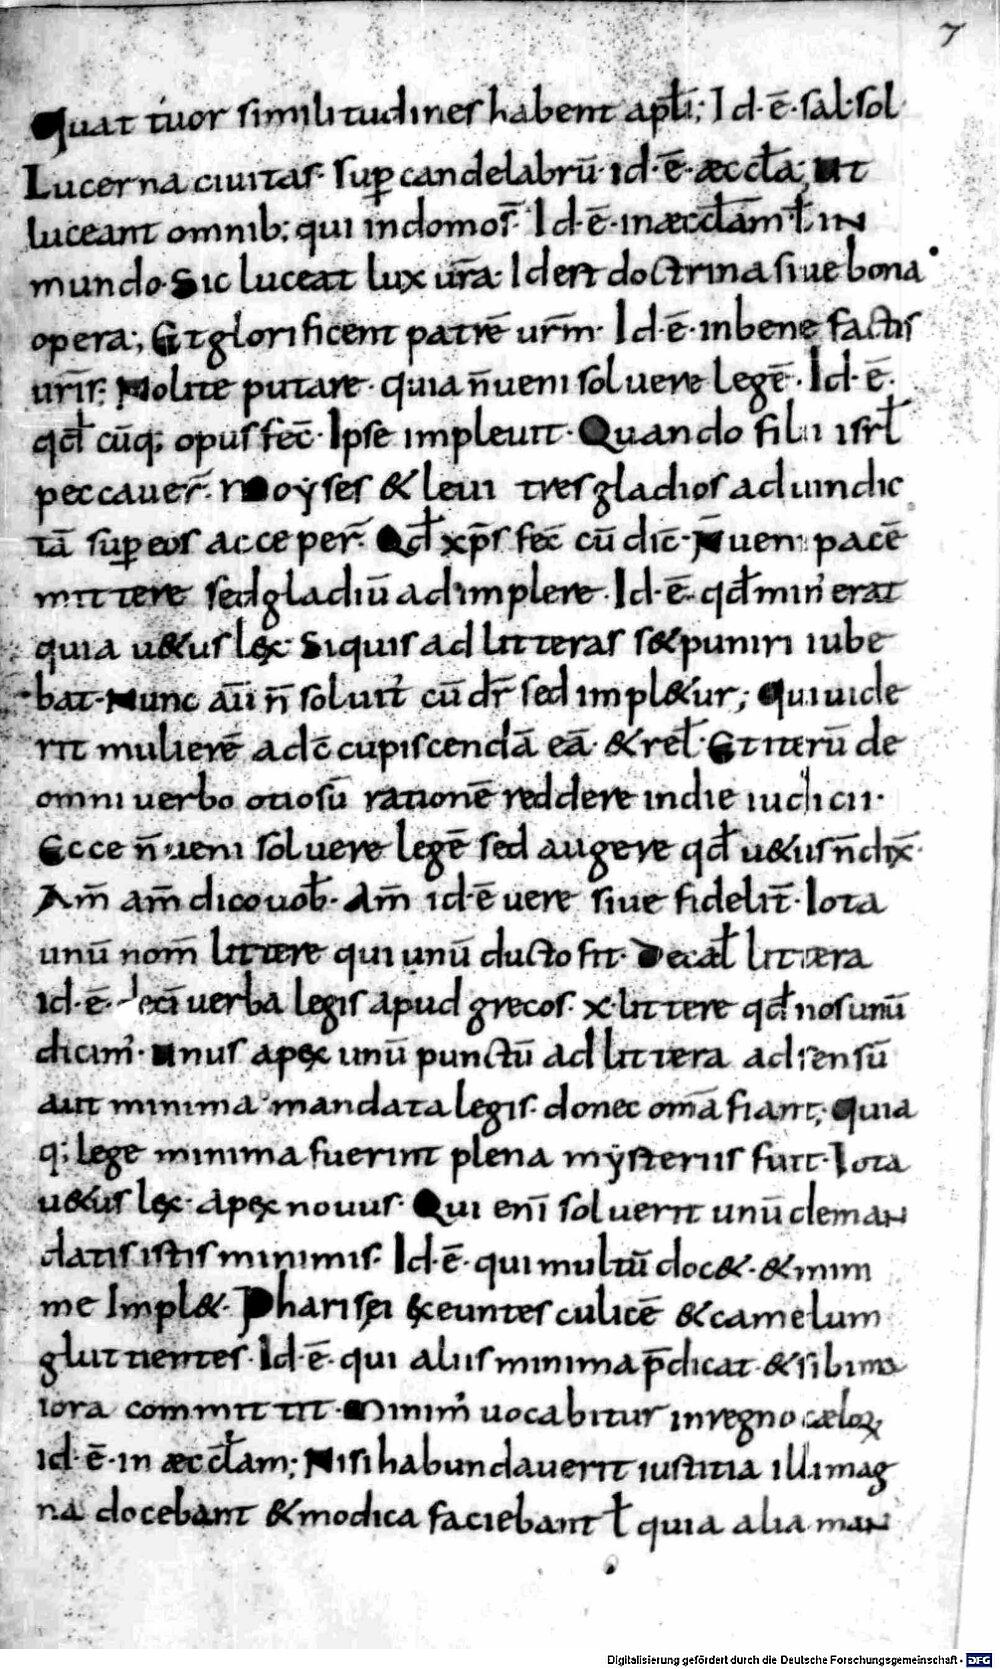 7
Quattuor similitudines habent apłi; Id·ē·sal·sol
Lucerna ciuitas· sup candelabrū·id·ē·æccła; Ut
luceant omnib; qui indomo s̄· Id·ē·inæccłam ł in
mundo·Sic luceat lux ur̄a· Idest doctrina siue bona
opera; Et glorificent patrē ur̄m· Id·ē·inbene factis
ur̄is· Nolite putare· quia n̄ ueni soluere legē· Id·ē·
qđ cūq; opus fec̄· Ipse impleuit· Quando filii isrł
peccauer̄· Moyses & leui tres gladios ad uindic
tā sup eos acceper̄· Qđ xp̄s fec̄ cū dic̄· N̄ ueni pacē
mittere sed gladiū adimplere· Id·ē·qđ min' erat
quia u&us lex· Siquis ad litteras s& puniri iube
bat· Nunc aū n̄ soluit' cū dr̄ sed impl&ur; Qui uide
rit mulierē adc̄cupiscendā eā· & rel· Et iterū de
omni uerbo otiosū rationē reddere indie iudicii·
Ecce n̄ ueni soluere legē sed augere qđ u&us n̄ dix̄·
Am̄ am̄ dico uob· Am̄ id·ē uere siue fidelit̄· Iota
unū nom̄ littere qui unū ducto fit· Decal littera
id·ē· decī uerba legis apud grecos· x·littere qđ nos unū
dicim'· Unus apex unū punctū ad littera ad sensū
aut minima mandata legis· donec om̄a fiant; Quia
q; lege minima fuerint plena mysteriis fuit· Iota
u&us lex· apex nouus· Qui enī soluerit unū deman
datis istis minimis· Id·ē·qui multū doc&·& mini
me Impl&· Pharisei exeuntes culicē & camelum
gluttientes· Id·ē·qui aliis minima p̄dicat & sibi ma
iora committit· Minim' uocabitur inregno cæloꝝ
id·ē·in æccłam; Nisi habundauerit iustitia illi mag
na docebant & modica faciebant ł quia alia man
Digitalisierung gefördert durch die Deutsche Forschungsgemeinschaft - DFG